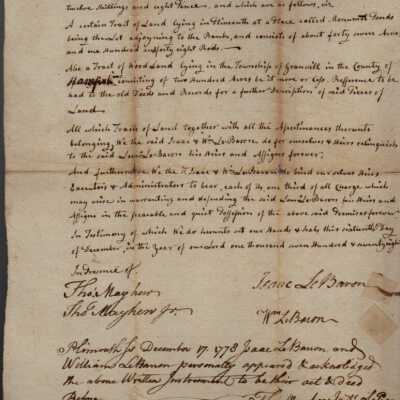 twelve Shillings and eight Pence, and which are as follows, viz
A certain Tract of Land lying in Plimouth at a Place called Monument Ponds
being the Lot adjoyning to the Bounds, and consists of about forty seven Acres,
and one Hundred and forty eight Rods.
Also a Tract of Wood Land lying in the Township of Granvill in the County of
Hampsh consisting of two Hundred Acres be it more or less. Refference to be
had to the old Deeds and Records for a further Discription of said Pieces of
Land.
All which Tracts of Land together with all the Apurtinances thereunto
belonging, We the said Isaac & Wm LeBaron do for ourselves & Heirs relinquish
to the said Lemuel LeBaron his Heirs and Assigns forever;
And furthermore We the sd Isaac & Wm LeBaron do bind ourselves Heirs
Executors & Administrators to bear, each of us one third of all Charge which
may arise in warranting and defending the said Lemuel LeBaron his Heirs and
Assigns in the peaceable and quiet Possession of the above said Premises forever
In Testimony of which We do hereunto set our Hands & Seals this sixteenth Day
of December, in the Year of our Lord one thousand seven Hundred & seventy eight
In Presence of
Thos Mayhew
Thos Mayhew Jr.
Isaac LeBaron
Wm LeBaron
Plimouth Ss December 17. 1778 Isaac LeBaron and
William LeBaron personally appeared & acknowledged
the above Written Instrument to be their act & Deed
Before